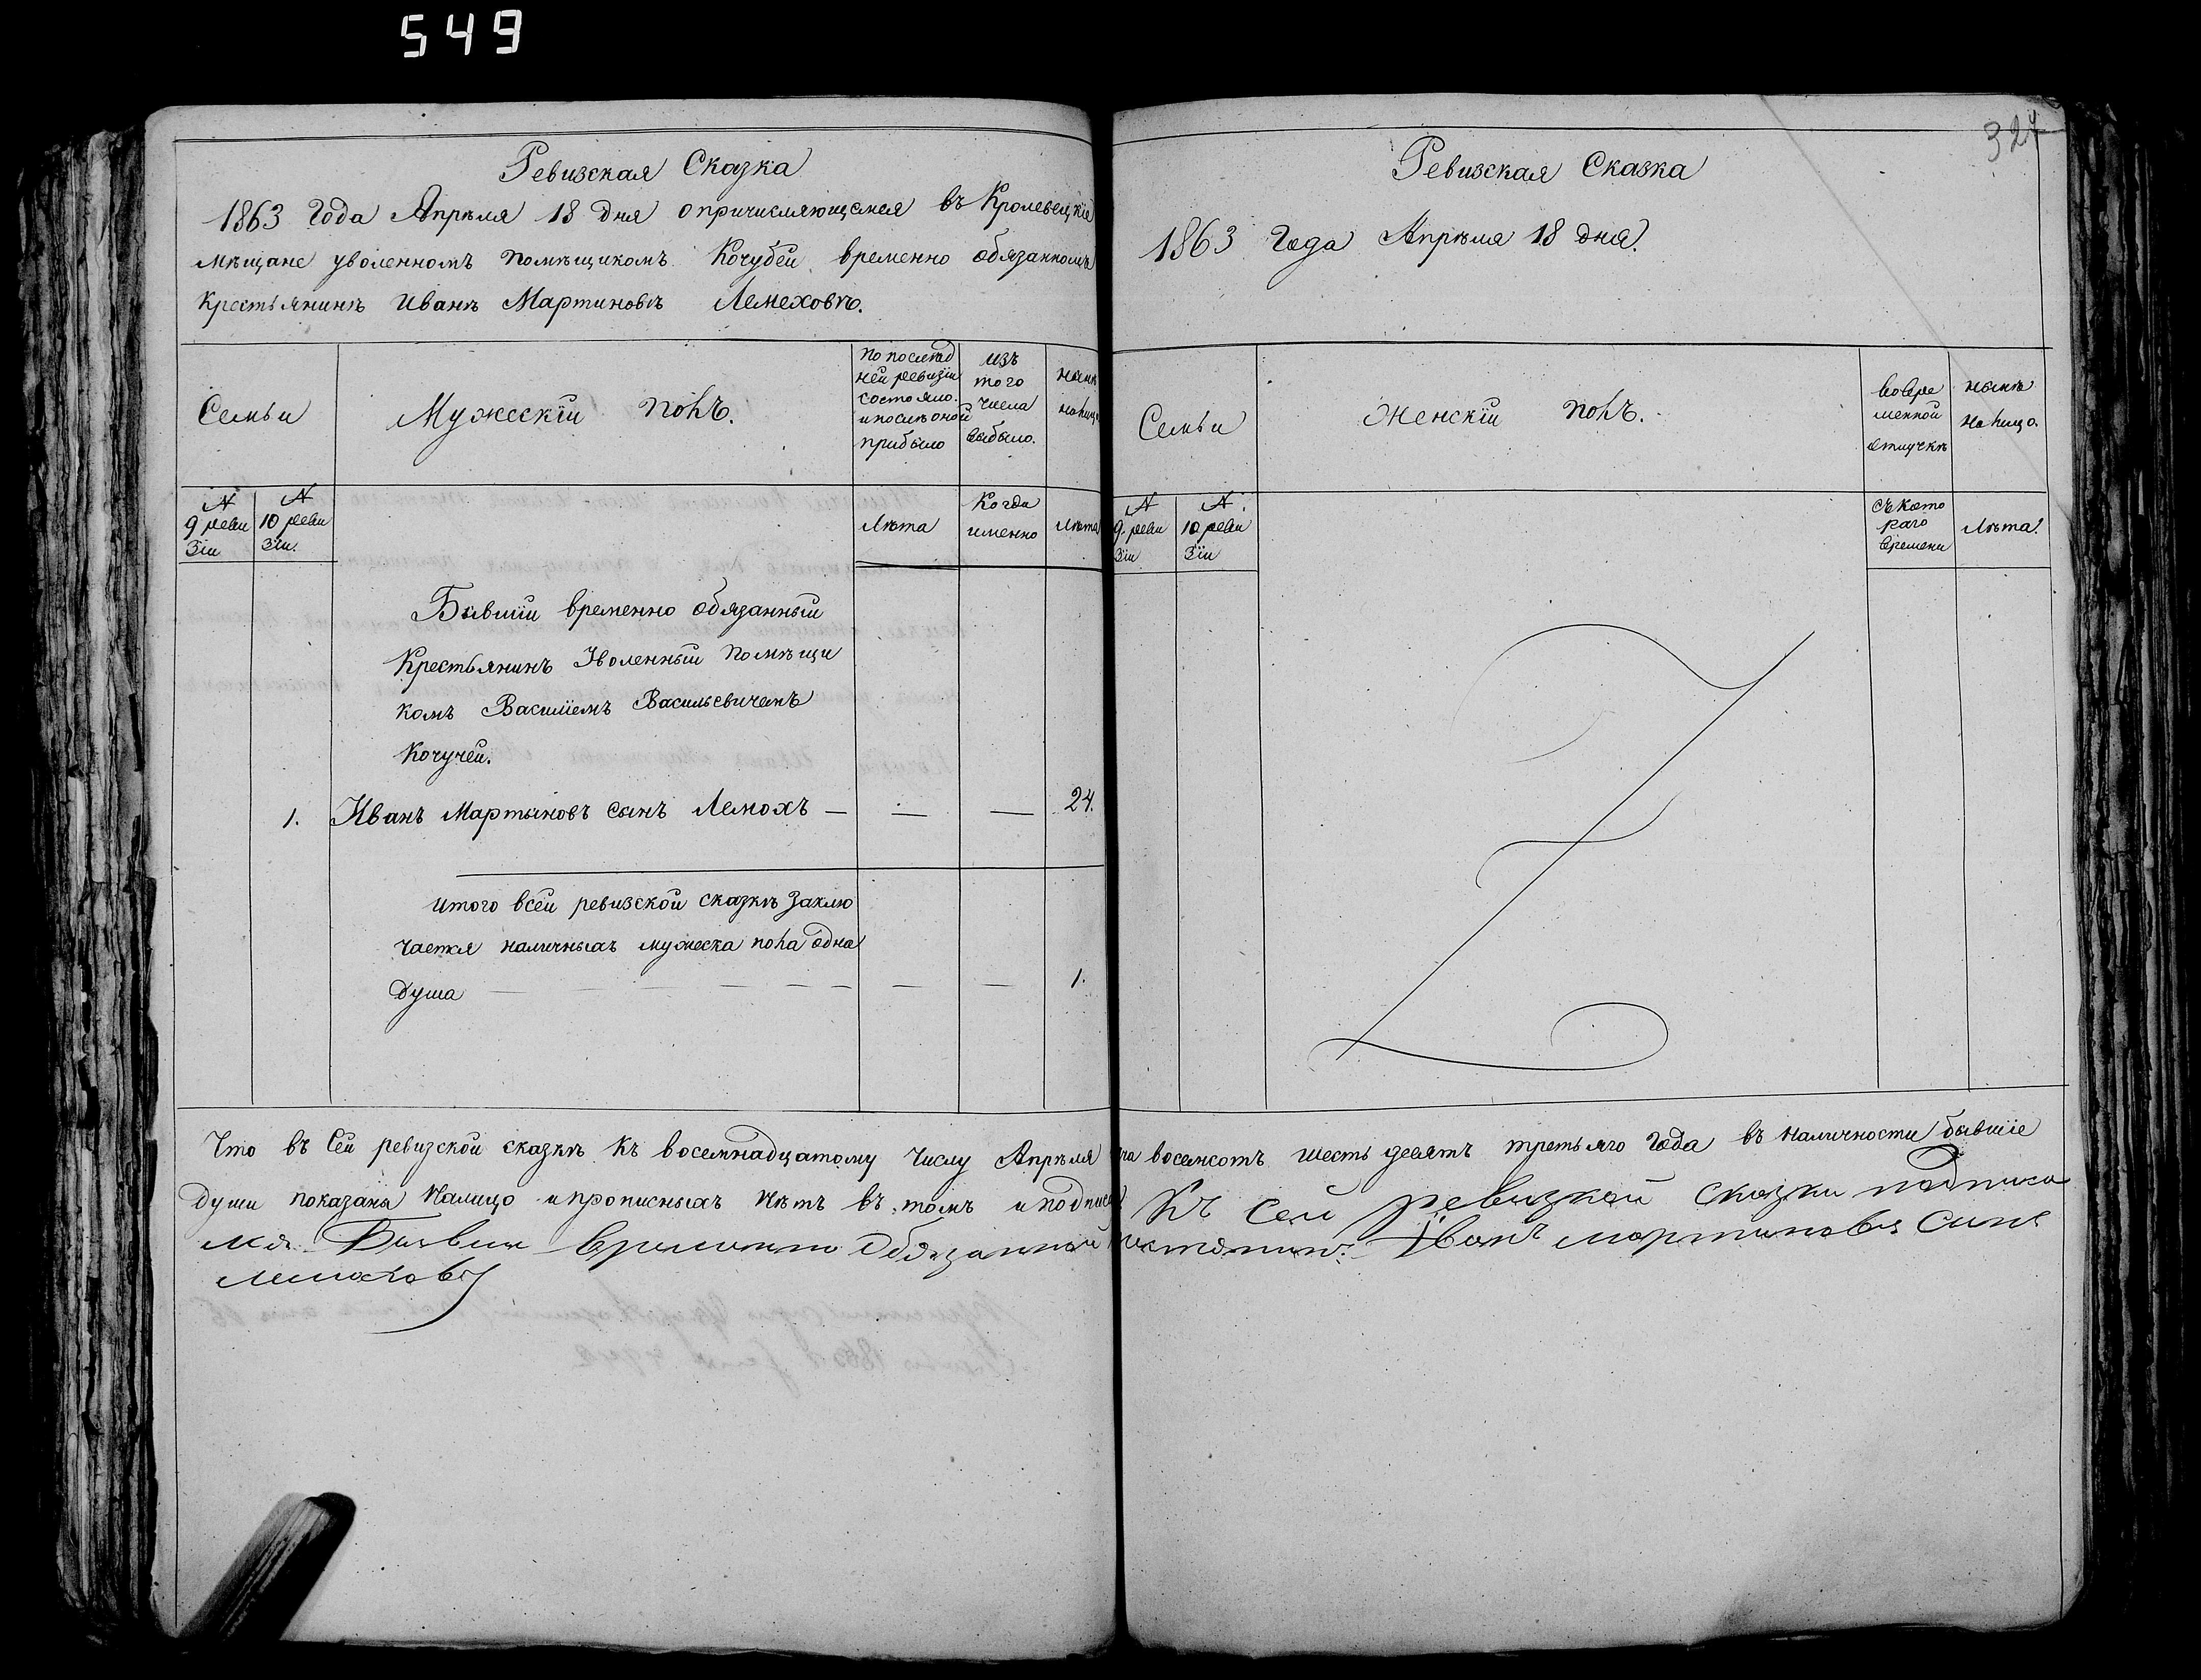 549
324
Ревизская Сказка
1863 Года Апрѣля 18 дня о причисляющемся въ Кролевецкіе
мѣщане уволенномъ помѣщикомъ Кочубей временно обязанномъ
Крестьянинѣ Иванѣ Мартиновѣ Лемеховѣ.
Семьи
Мужескій полъ.
по послѣд
ней ревизіи
состояло.
и послѣ оной
прибыло
изъ
того
числа
выбыло.
нынѣ
налицо
№
9 реви
зіи
№
10 реви
зіи.
Лѣта
Когда
именно
Лѣта
Бывшій временно обязанный
Крестьянинъ Уволенный помѣщи
комъ Василіемъ Васильевичемъ
Кочучей.
1. Иванъ Мартыновъ сынъ Лемохъ — — — 24.
итого всей ревизской сказкѣ заклю
чается наличныхъ мужеска пола одна
душа — — — 1.
Ревизская Сказка
1863 Года Апрѣля 18 дня.
Семьи
Женскій полъ.
во вре
менной
отлучкѣ
нынѣ
налицо.
№
9 реви
зіи
№
10 реви
зіи
съ кото
раго
времени
Лѣта.
Что въ Сей ревизской сказкѣ къ восемнадцатому числу Апрѣля восемсотъ шесть десятъ третьяго Года въ наличности бывшіе
души показаны Налицо и прописныхъ нѣтъ въ томъ и подписа Къ сей ревизкой сказки подписа
лся Бывши временно Обязанной Иванъ мартиновъ синъ
Лемеховъ